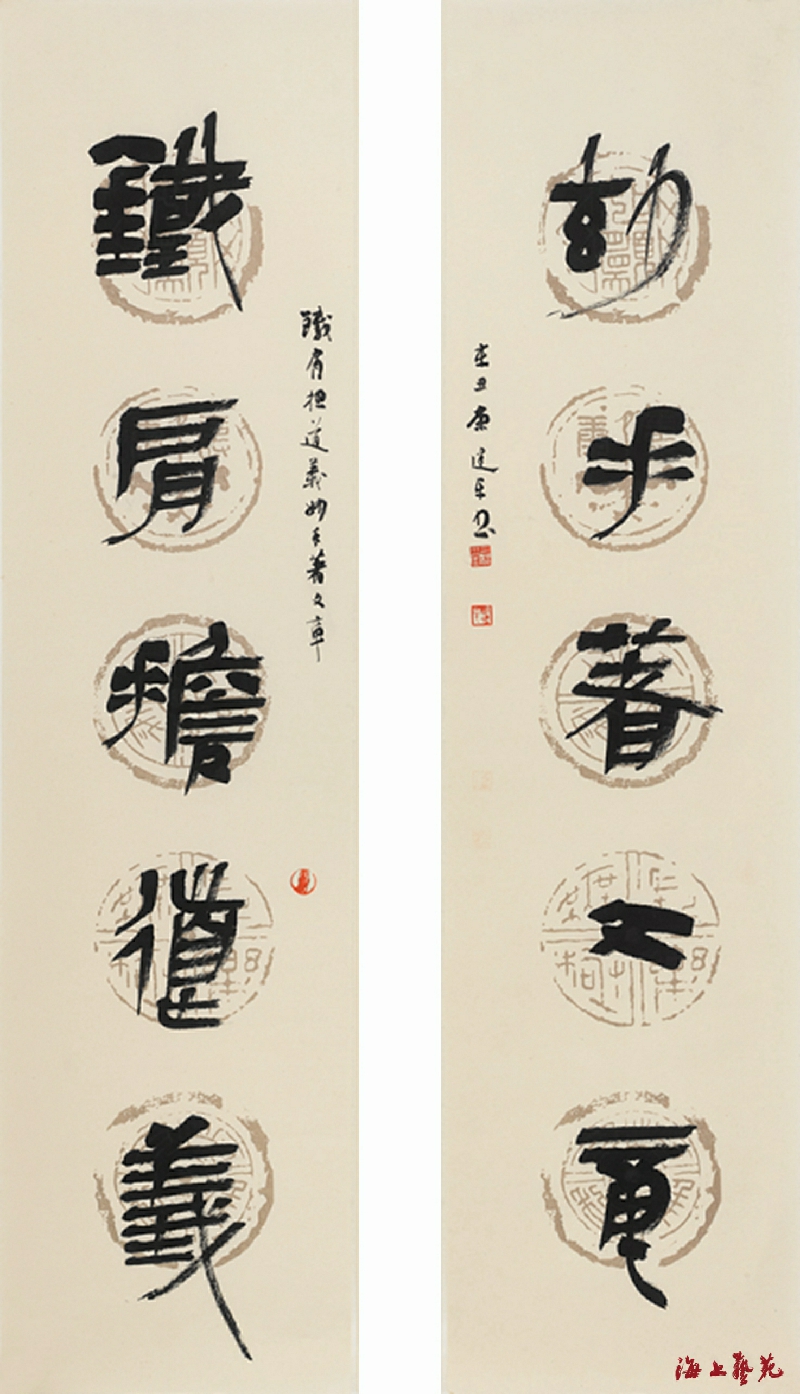 鐵肩擔道義
鐵肩担道義妙手著文章
玅手著文章
辛丑
海上藝苑